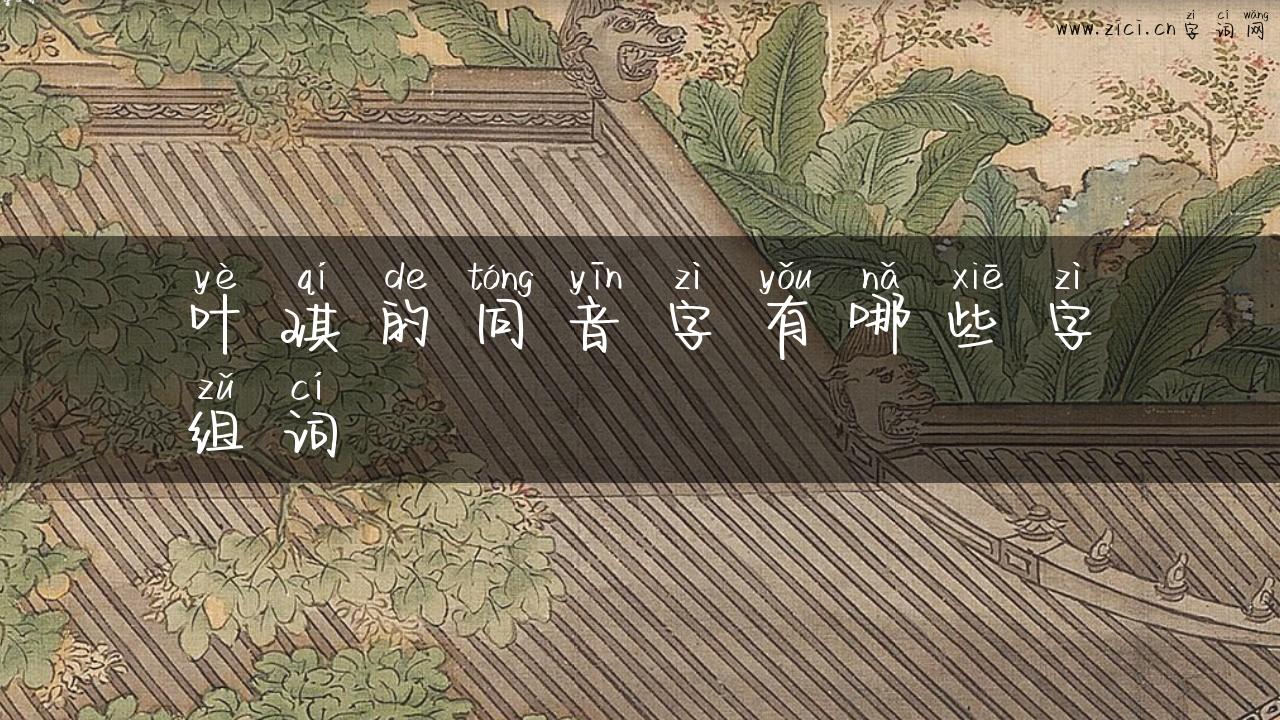 zì cí wǎng
www.zici.cn 字词网
yè qí de tóng yīn zì yǒu nǎ xiē zì
叶琪的同音字有哪些字
zǔ cí
组词